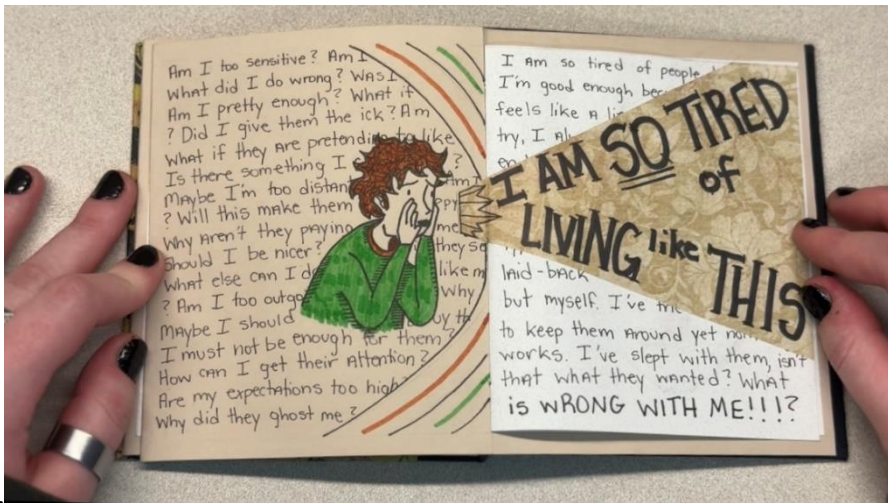 Am I too sensitive? Am I
What did I do wrong? Was I
Am I pretty enough? What if
? Did I give them the ick? Am
What if they are pretending to like
Is there something I ?
Maybe I'm too distant Am I
? Will this make them
Why aren't they paying me
Should I be nicer? they se
What else can I do like m
? Am I too outgo Why
Maybe I should buy th
I must not be enough for them?
How can I get their attention?
Are my expectations too high
Why did they ghost me?
I am so tired of people
I'm good enough bec
feels like a li
try, I al
en
I AM SO TIRED
of
LIVING like THIS
laid-back
but myself. I've tri
to keep them around yet
works. I've slept with them, isn't
that what they wanted? What
is WRONG WITH ME!!!?